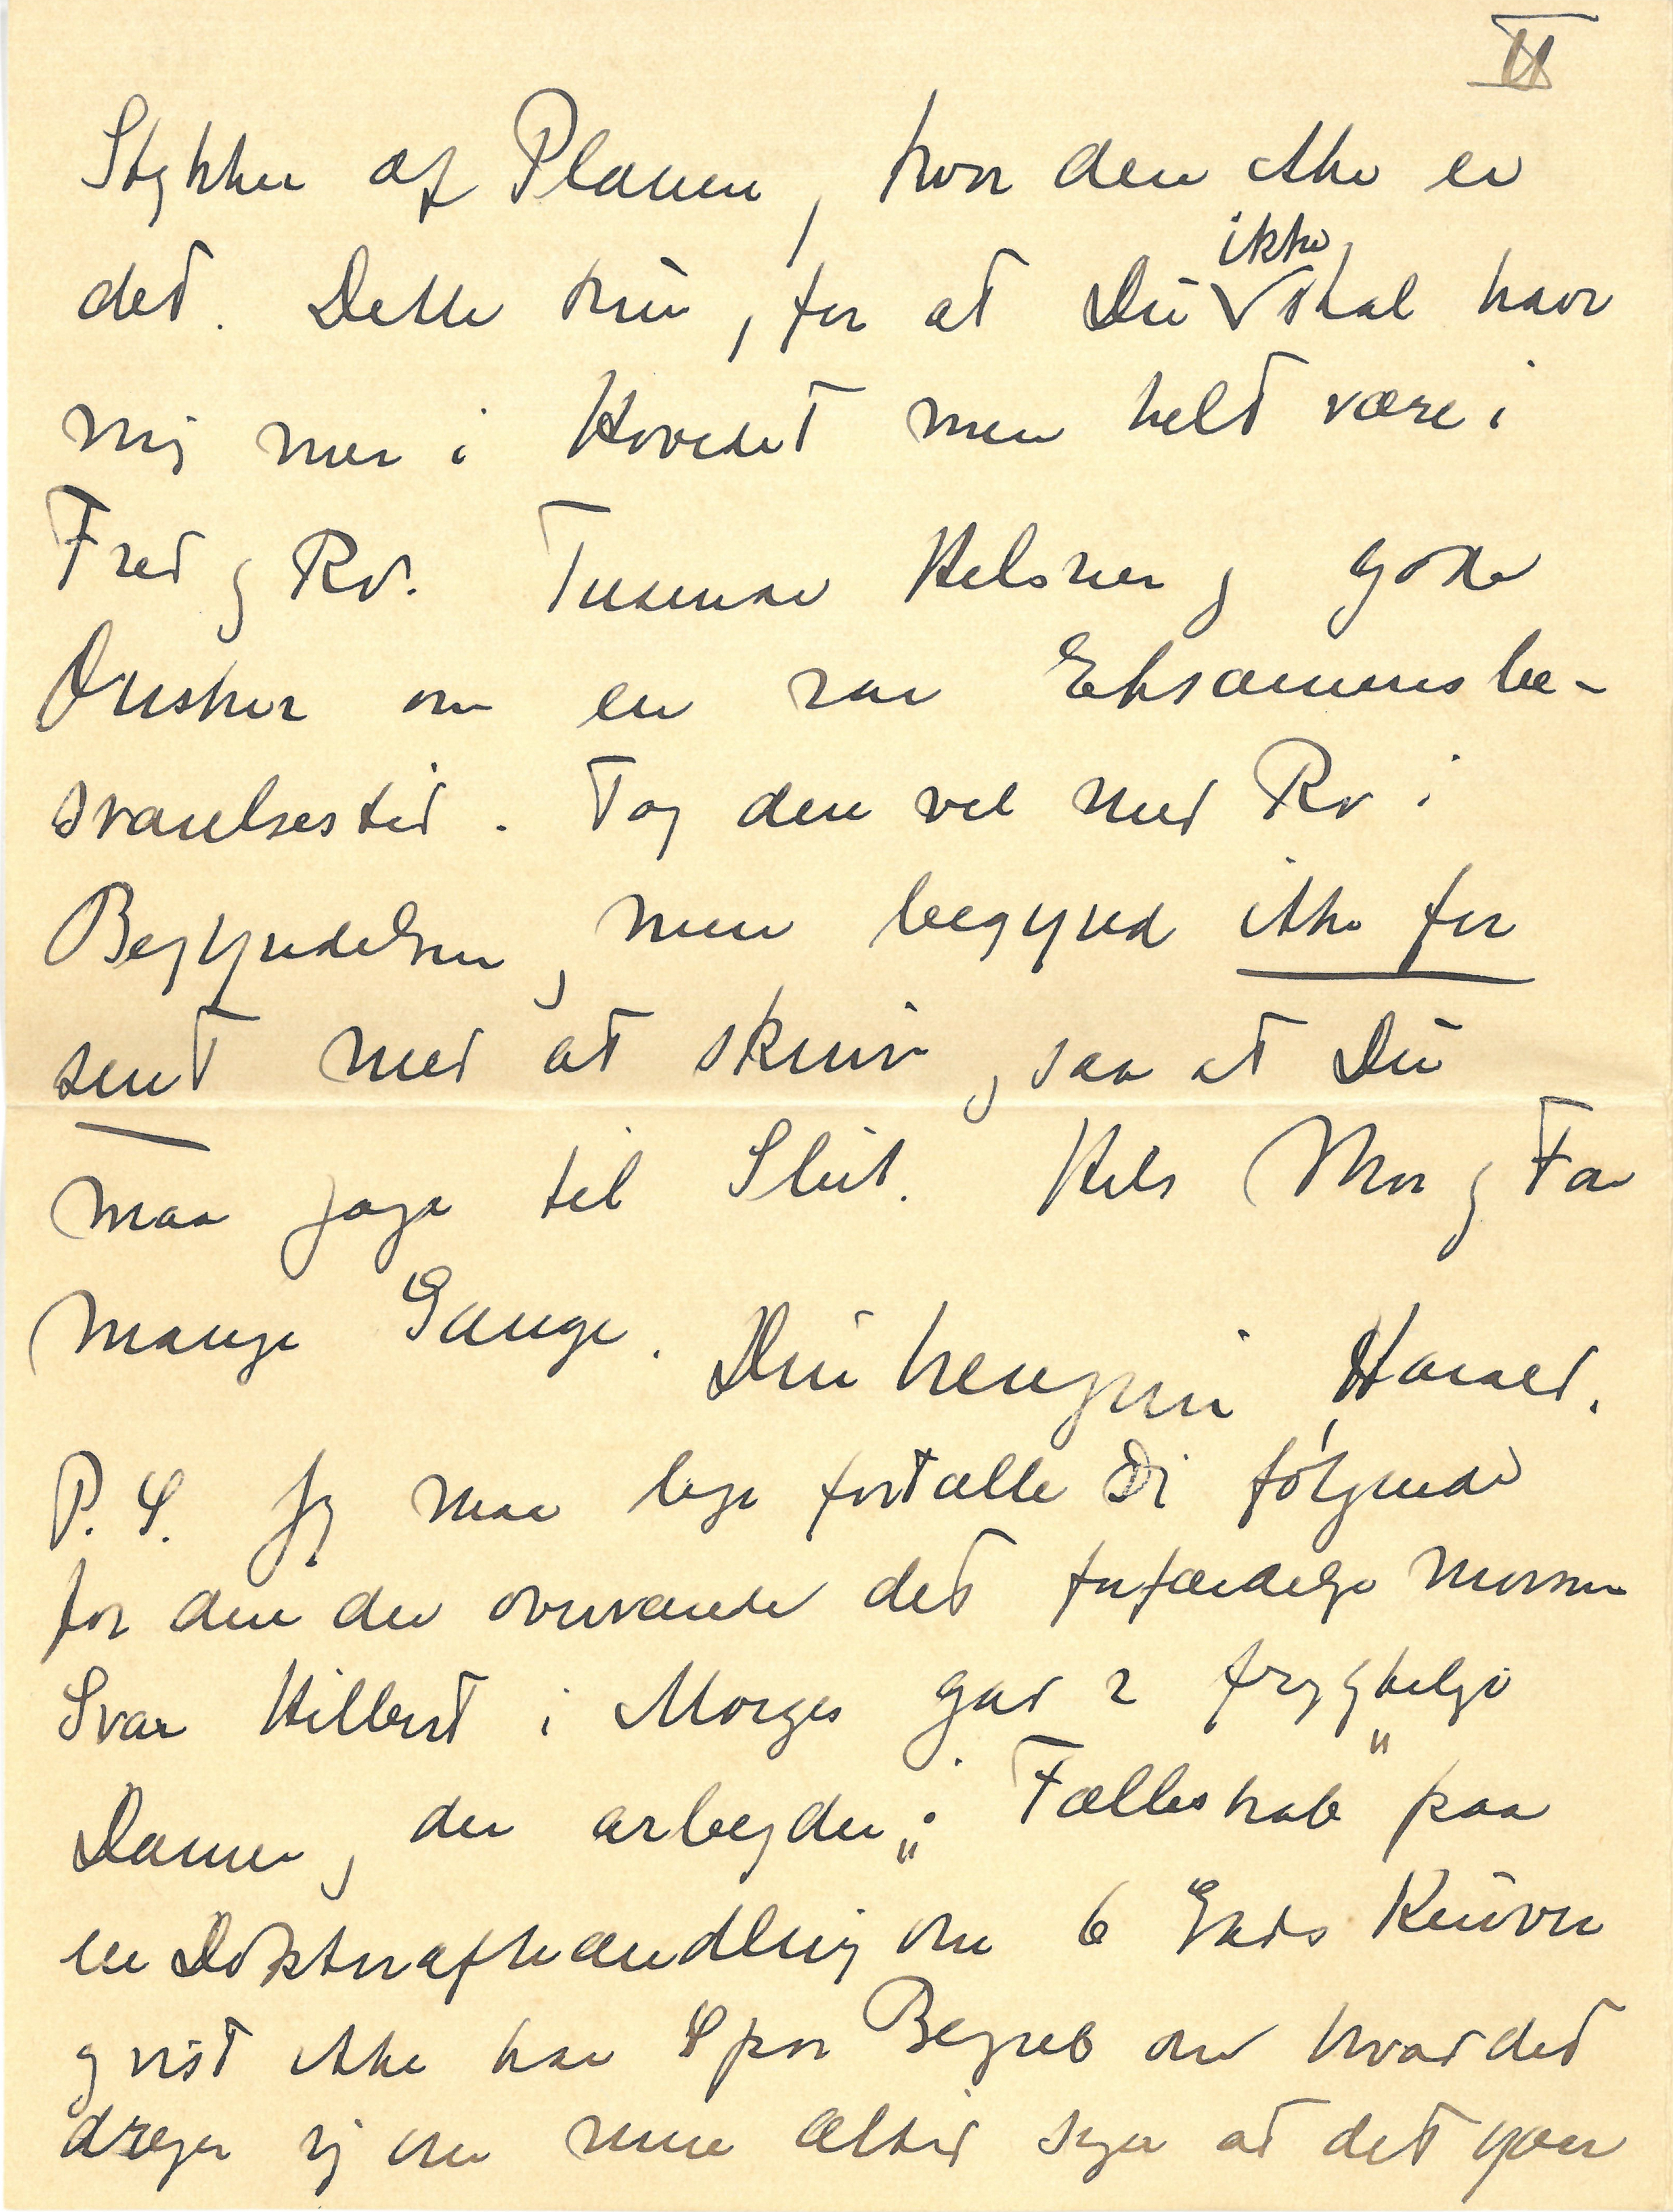 II
Stykker af Planen, hvor den ikke er
ikke
det. Dette kun, for at Du skal have
mig mer i Hovedet men helt være i
Fred og Ro. Tusende Hilsner og gode
Ønsker om en rar Eksamensbe-
svarelsestid. Tag den vel med Ro i
Begyndelsen, men begynd ikke for
sent med at skrive, saa at Du
maa jage til Slut. Hils Mor og Far
mange Gange. Din hengivne Harald.
P. S. Jeg maa lige fortælle Dig følgende
for den der overværede det forfærdelig morsomme
Svar Hilbert i Morges gav 2 frygtelige
Damer, der arbejder "i Fællesskab" paa
en Doktorafhandling om 6 Grads Kurver
og vist ikke har Spor Begreb om hvad det
drejer sig om men altid siger at det gaar